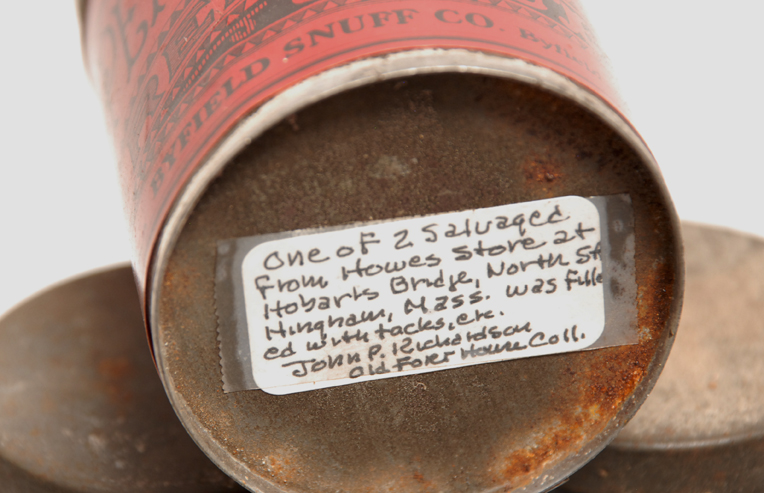 BYFIELD SNUFF CO. Byfie
One of 2 Salvaged
From Howes Store at
Hobarts Bridge, North St
Hingham, Mass. was fille
ed with tacks, etc.
John P. Richardson
Old Fort House Coll.